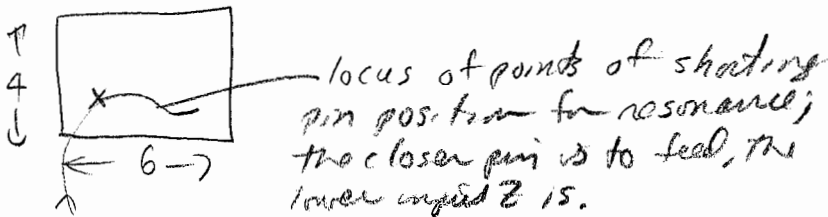 4
6
X
locus of points of shorting
pin position for resonance;
the closer pin is to feed, the
lower input Z is.